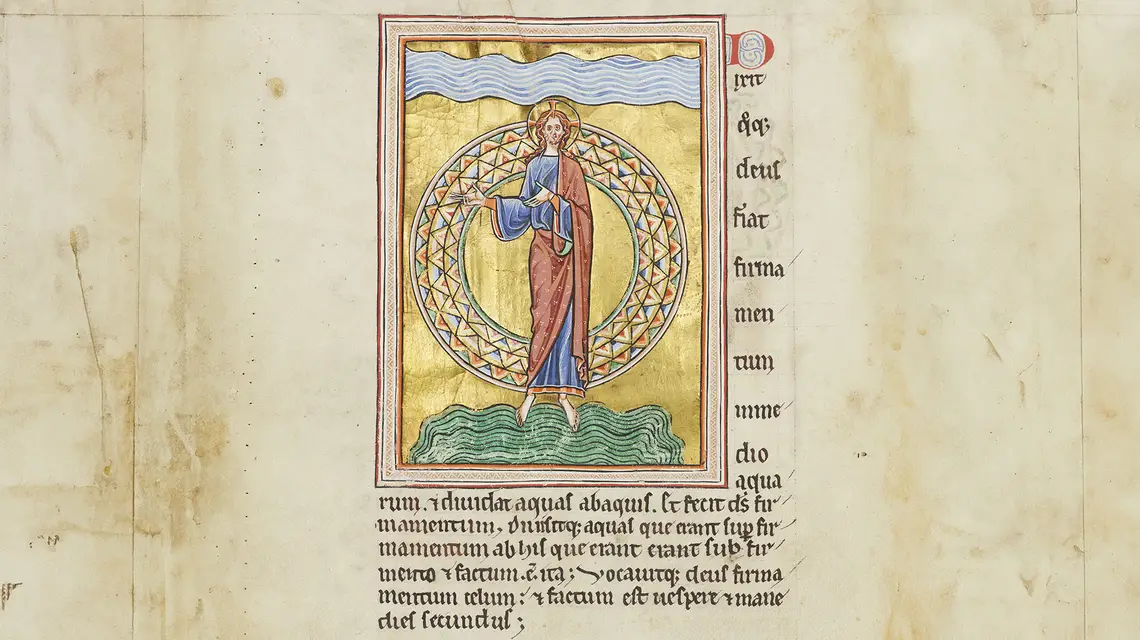 D
ixit
q̊q;
deus
fiat
firma
men
tum
inme
dio
aqua
rum. ⁊ diuidat aquas abaquis. Et fecit ds̄ fir
mamentum, diuisitq; aquas que erant sup̱ fir
mamentum ab his que erant erant sub fir
mento ⁊ factum. ē. ita; Vocauitq; deus firma
mentum celum; ⁊ factum est uespere ⁊ mane
dies secundus;